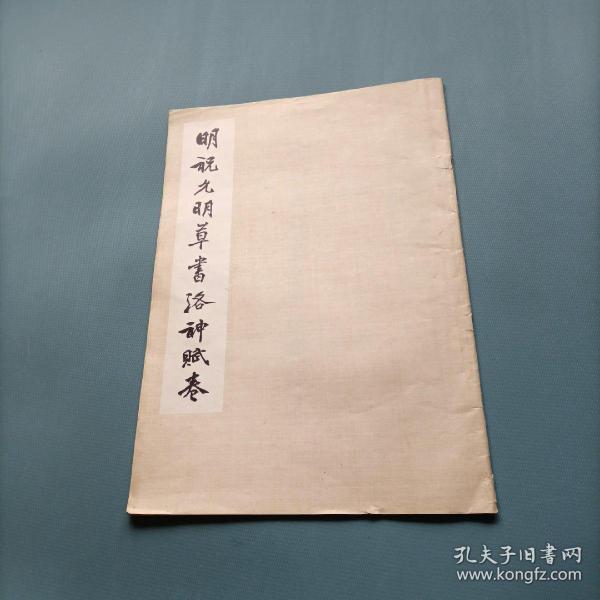 明祝允明草書洛神賦卷
孔夫子旧書网
www.kongfz.com